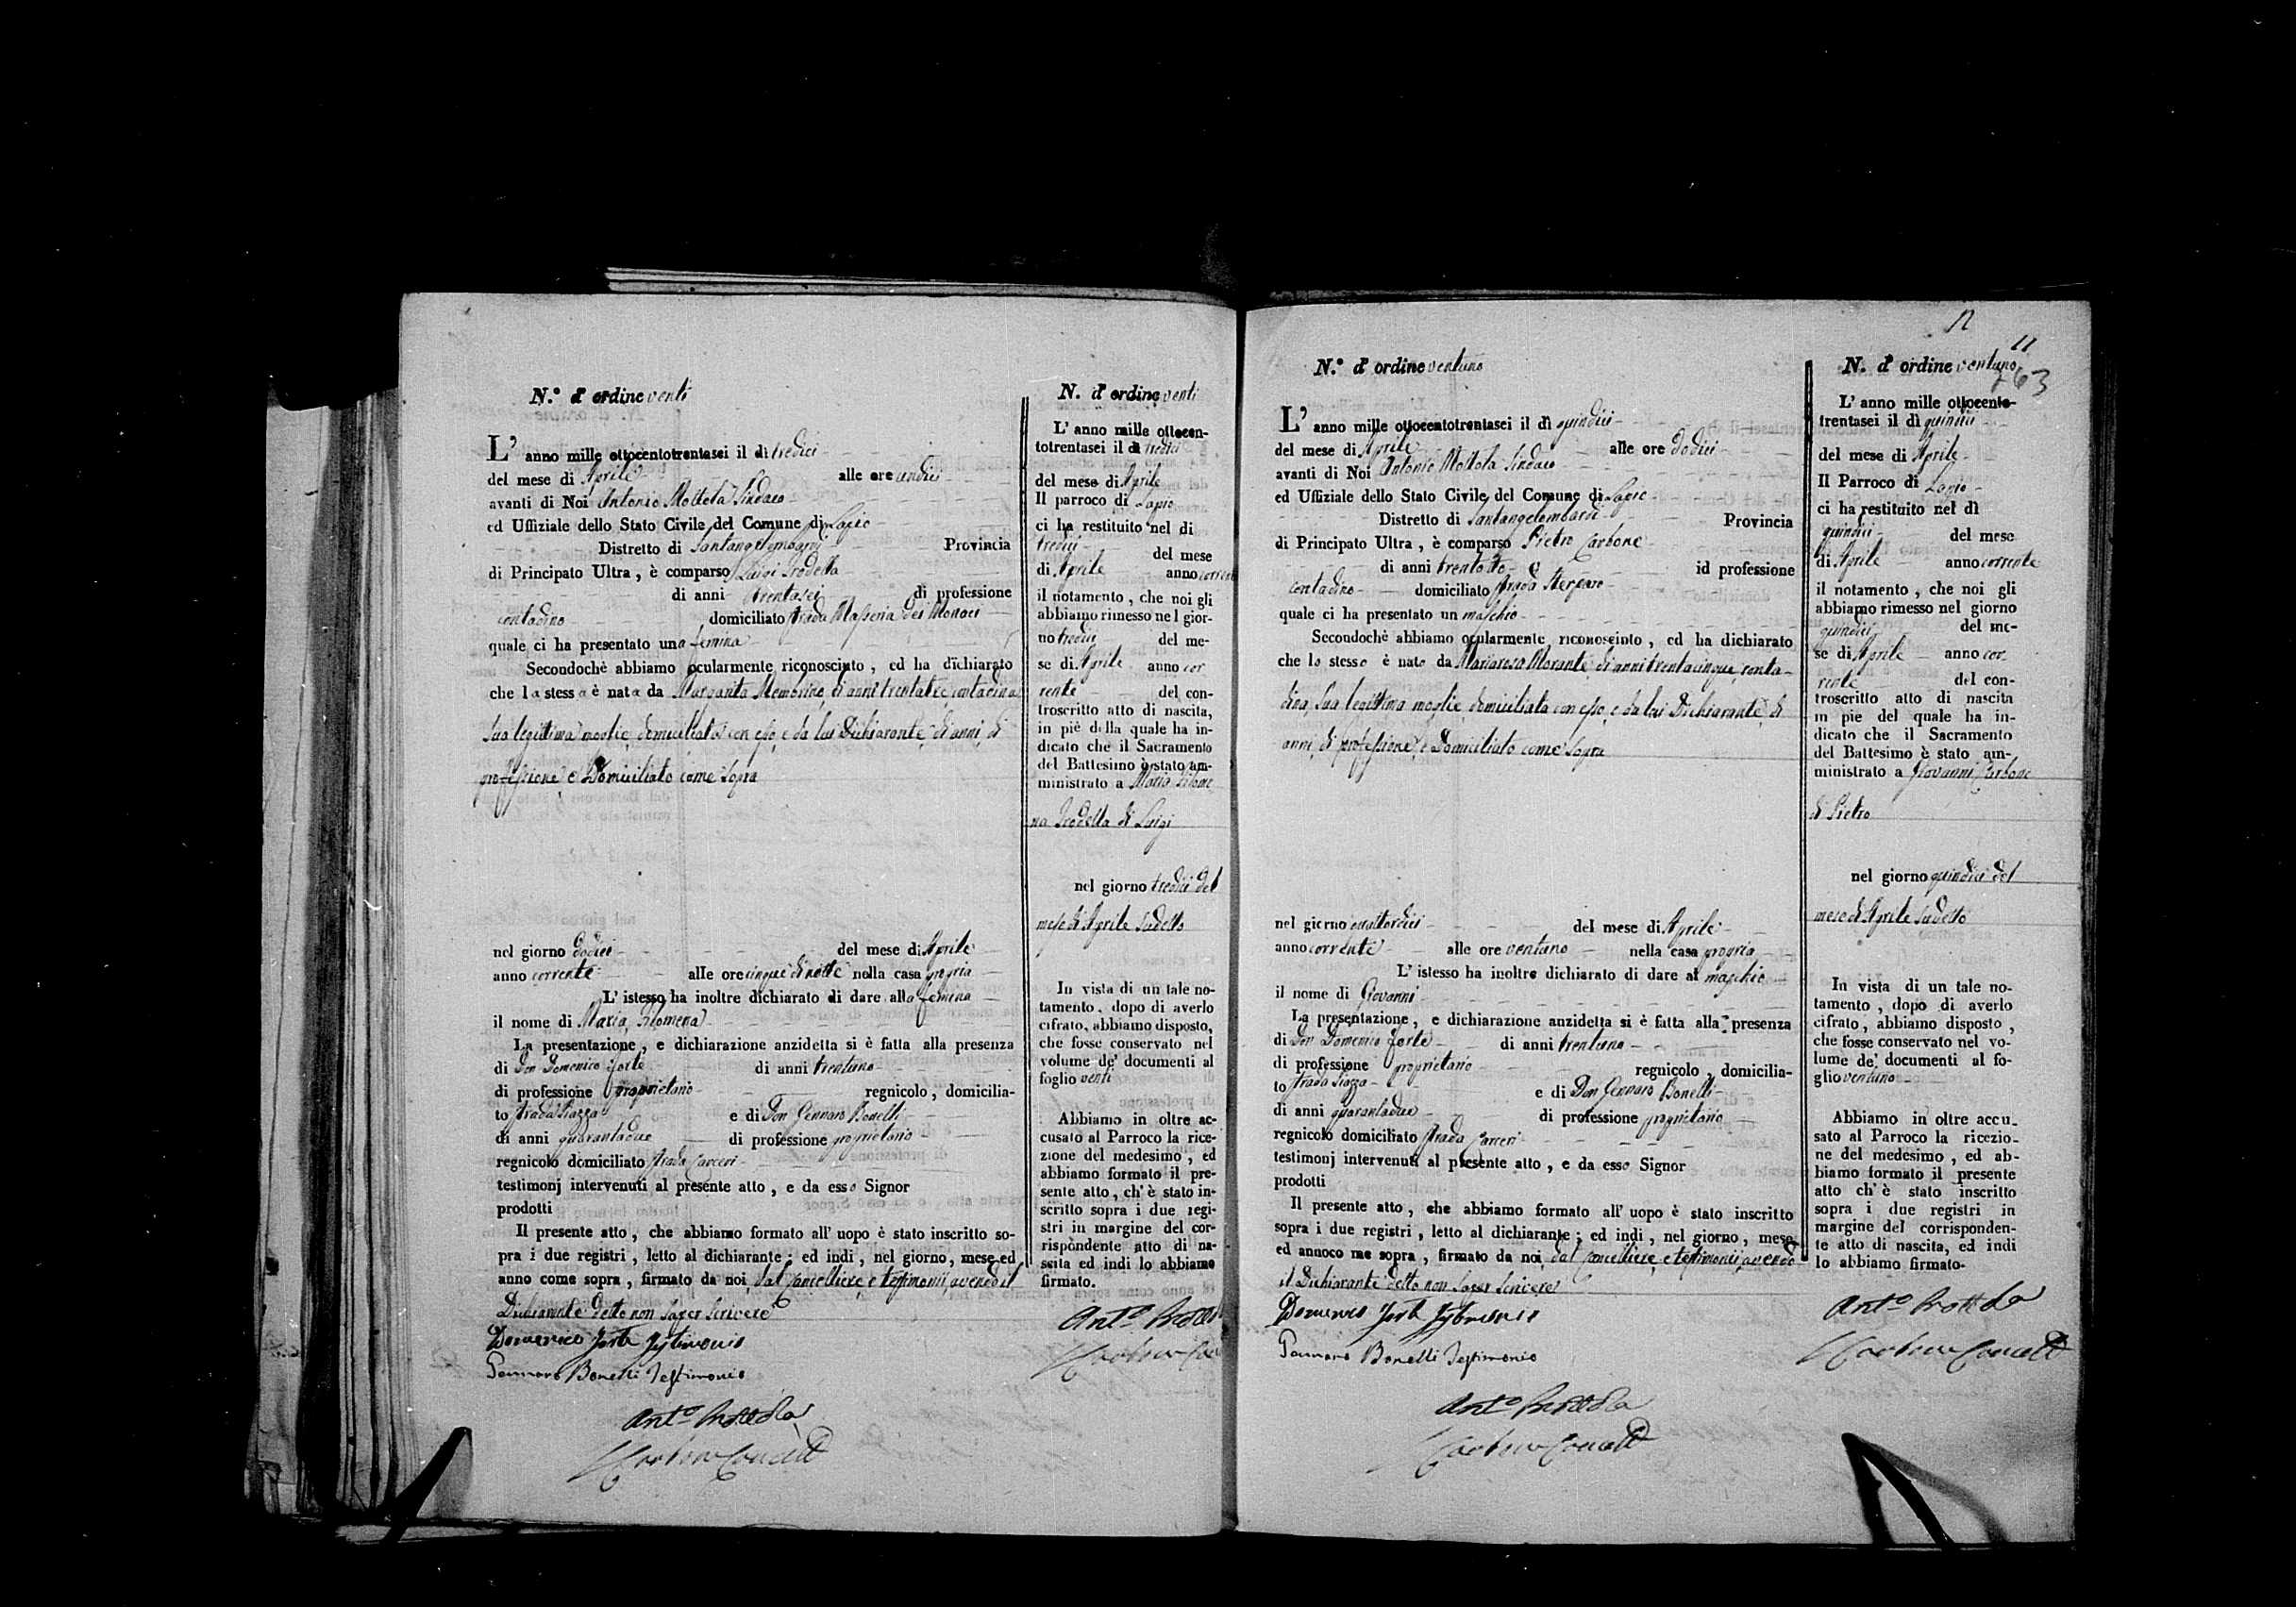 N.º d'ordine venti
L' anno mille ottocentotrentasei il dì tredici
del mese di Aprile alle ore undici
avanti di Noi Antonio Mottola Sindaco
ed Uffiziale dello Stato Civile del Comune di Lapio
Distretto di Santangelombardi Provincia
di Principato Ultra , è comparso Luigi Irodella
di anni trentasei di professione
contadino domiciliato strada Masseria dei Monaci
quale ci ha presentato una femina
Secondochè abbiamo ocularmente riconosciuto , ed ha dichiarato
che la stessa è nata da Margarita Membrino, di anni trentatre, contadina
sua legittima moglie, domiciliata con esso, e da lui Dichiarante, di anni, di
professione, e Domiciliato come sopra
nel giorno dodici del mese di Aprile
anno corrente alle ore cinque di notte nella casa propria
L' istesso ha inoltre dichiarato di dare alla femina
il nome di Maria Filomena
La presentazione , e dichiarazione anzidetta si è fatta alla presenza
di Don Domenico Forte di anni trentuno
di professione proprietario regnicolo , domicilia-
to strada Piazza e di Don Gennaro Bonelli
di anni quarantadue di professione proprietario
regnicolo domiciliato strada Carceri
testimonj intervenuti al presente atto , e da esso Signor
prodotti
Il presente atto , che abbiamo formato all' uopo è stato inscritto so-
pra i due registri , letto al dichiarante ; ed indi , nel giorno , mese ed
anno come sopra , firmato da noi, dal Cancelliere, e testimonii, avendo il
Dichiarante detto non saper scrivere
Domenico Forte Testimonio
Gennaro Bonelli Testimonio
Ant.o Mottola
N. d'ordine venti
L' anno mille ottocen-
totrentasei il dì tredici
del mese di Aprile
Il parroco di Lapio
ci ha restituito nel di
tredici del mese
di Aprile anno corrente
il notamento , che noi gli
abbiamo rimesso nel gior-
no tredici del me-
se di Aprile anno cor
rente del con-
troscritto atto di nascita,
in piè della quale ha in-
dicato che il Sacramento
del Battesimo è stato am-
ministrato a Maria Filome
na Irodella di Luigi
nel giorno tredici del
mese di Aprile sudetto
In vista di un tale no-
tamento , dopo di averlo
cifrato, abbiamo disposto,
che fosse conservato nel
volume de' documenti al
foglio venti
Abbiamo in oltre ac-
cusato al Parroco la rice-
zione del medesimo , ed
abbiamo formato il pre-
sente atto , ch' è stato in-
scritto sopra i due regi-
stri in margine del cor-
rispondente atto di na-
scita ed indi lo abbiamo
firmato.
Ant.o Mottola
12
11
263
N.º d'ordine ventuno
L' anno mille ottocentotrentasei il dì quindici
del mese di Aprile alle ore dodici
avanti di Noi Antonio Mottola Sindaco
ed Uffiziale dello Stato Civile del Comune di Lapio
Distretto di Santangelombardi Provincia
di Principato Ultra , è comparso Pietro Carbone
di anni trentotto id professione
contadino domiciliato strada
quale ci ha presentato un maschio
Secondochè abbiamo ocularmente riconosciuto , ed ha dichiarato
che lo stesso è nato da Mariarosa Morante, di anni trentacinque, conta-
dina, sua legittima moglie, domiciliata con esso, e da lui Dichiarante, di
anni, di professione, e Domiciliato come sopra
nel giorno quattordici del mese di Aprile
anno corrente alle ore ventuno nella casa propria
L' istesso ha inoltre dichiarato di dare al maschio
il nome di Giovanni
La presentazione , e dichiarazione anzidetta si è fatta alla presenza
di Don Domenico Forte di anni trentuno
di professione proprietario regnicolo , domicilia-
to strada Piazza e di Don Gennaro Bonelli
di anni quarantadue di professione proprietario
regnicolo domiciliato strada Carceri
testimonj intervenuti al presente atto , e da esso Signor
prodotti
Il presente atto , che abbiamo formato all' uopo è stato inscritto
sopra i due registri , letto al dichiarante ; ed indi , nel giorno , mese
ed annoco me sopra , firmato da noi, dal Cancelliere, e testimonii, avendo
il Dichiarante detto non saper scrivere
Domenico Forte Testimonio
Gennaro Bonelli Testimonio
Ant.o Mottola
N. d'ordine ventuno
L' anno mille ottocento-
trentasei il dì quindici
del mese di Aprile
Il Parroco di Lapio
ci ha restituito nel dì
quindici del mese
di Aprile anno corrente
il notamento , che noi gli
abbiamo rimesso nel giorno
quindici del me-
se di Aprile anno cor
rente del con-
troscritto atto di nascita
in piè del quale ha in-
dicato che il Sacramento
del Battesimo è stato am-
ministrato a Giovanni Carbone
di Pietro
nel giorno quindici del
mese di Aprile sudetto
In vista di un tale no-
tamento , dopo di averlo
cifrato , abbiamo disposto ,
che fosse conservato nel vo-
lume de' documenti al fo-
glio ventuno
Abbiamo in oltre accu-
sato al Parroco la ricezio-
ne del medesimo , ed ab-
biamo formato il presente
atto ch' è stato inscritto
sopra i due registri in
margine del corrisponden-
te atto di nascita, ed indi
lo abbiamo firmato-
Ant.o Mottola